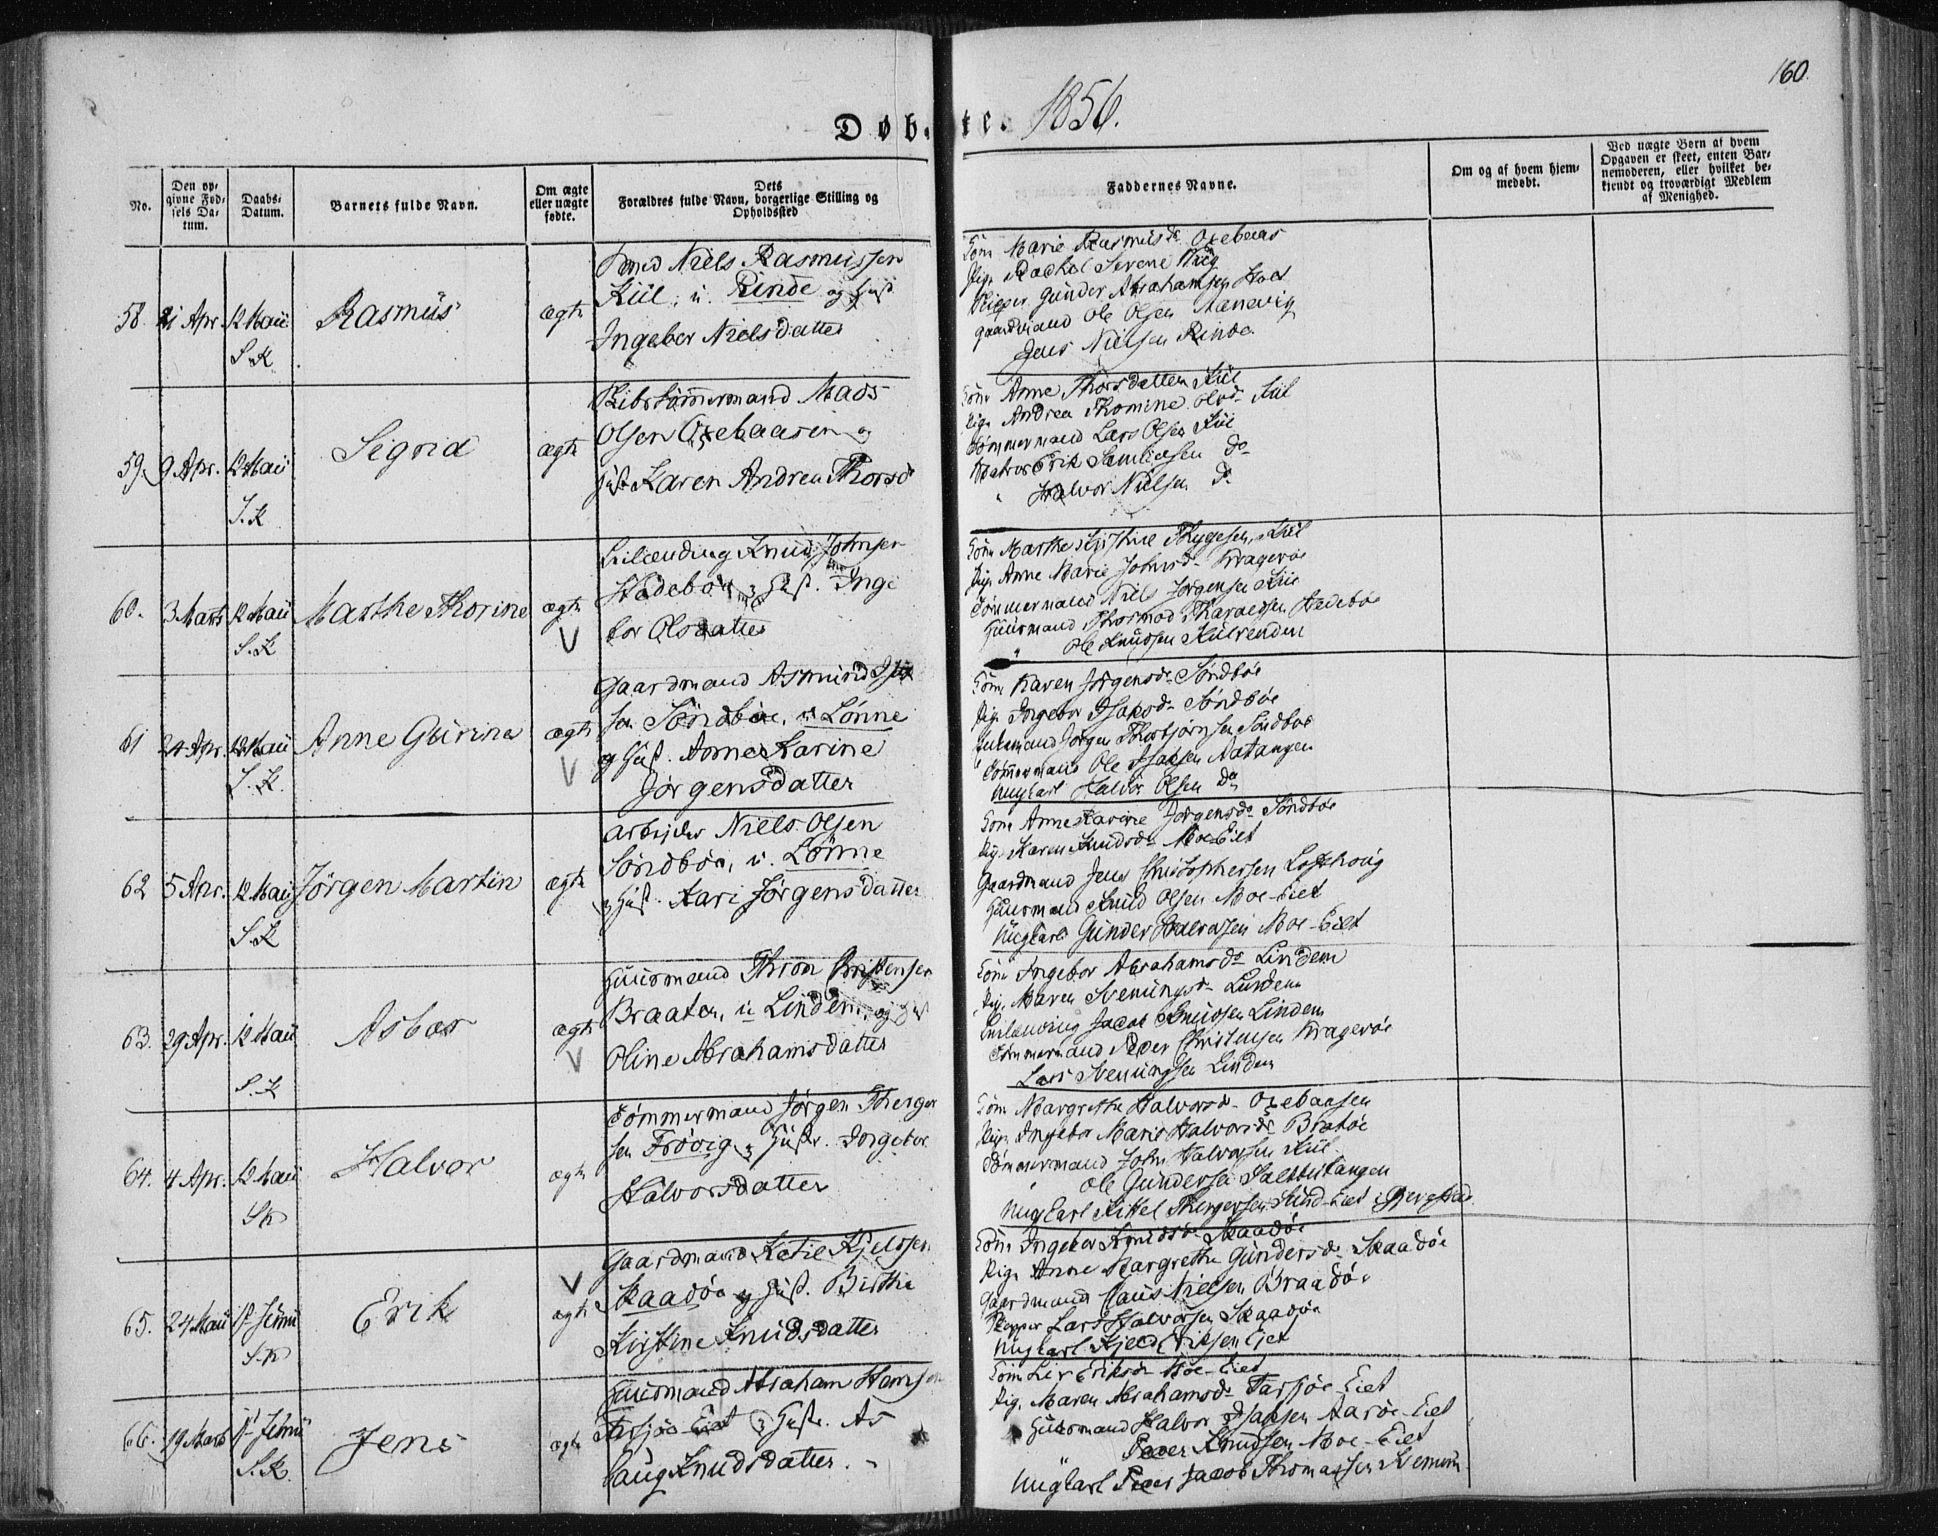 160.
Døbte. 1856.
No.
Den op-
givne Fød-
sels Da-
tum.
Daabs-
Datum.
Barnets fulde Navn.
Om ægte
eller uægte
fødte.
Dets
Forældres fulde Navn, borgerlige Stilling og
Opholdssted
Faddernes Navne.
Om og af hvem hjem-
medøbt.
Ved uægte Børn af hvem
Opgaven er skeet, enten Bar-
nemoderen, eller hvilket be-
kjendt og troværdigt Medlem
af Menighed.
58. 21 Apr. 12 Maii
S. K
Rasmus
ægte
Niels Rasmussen
Kiil, i Rinde og Hust.
Ingebor Nielsdatter
Kone Marie Rasmusd. Oxebaas
Pige Rachel Serene
Skipper Gunder Abrahamsen
Gaardmand Ole Olsen
Jens Nielsen Rinde
59. 9 Apr. 12 Maii
S. K
Sigrid
ægte
Skibstømmermand Mads
Olsen Oxebaasen og
Hust. Karen Andrea Thorsd
Kone Anne Thorsdatter Kiil
Pige Andrea Thomine Olsd. Kiil
Tømmermand Lars Olsen Kiil
Matros Erik Do
" Halvor Nielsen Do
60. 3 Marts 12 Maii
S. K
Marthe Thorine
ægte
V
Knud Johnsen
Hedebøe og Hust. Inge
bor Olsdatter
Kone Marthe Kirstine Thygesen, Kiil
Pige Anne Marie Johnsd. Kragerøe
Tømmermand Niels Jørgensen Kiil
Huusmand Thormod Haraldsen Hedebøe
" Ole Knudsen
61 24 Apr. 12 Maii
S. K.
Anne Gurine
ægte
V
Gaardmand Asmund Isak
sen Søndbøe, i Lønne
og Hust. Anne Karine
Jørgensdatter
Kone Karen Jørgensd. Søndbøe
Pige Ingebor Isaksd. Søndbøe
Jørgen Thorbjørnsen Søndbøe
Tømmermand Ole Isaksen Aatangen
Ungkarl Halvor Olsen Do
62 5 Apr. 12 Maii
S. K
Jørgen Martin
ægte
Arbejder Niels Olsen
Søndbøe, i Lønne
og Hust. Kari Jørgensdatter
Kone Anne Karine Jørgensd. Søndbøe
Pige Karen Knudsd. Moe-Eiet
Gaardmand Jens Christophersen Lofthoug
Huusmand Knud Olsen Moe-Eiet
Ungkarl Gunder Halvorsen Moe-Eiet
63. 29 Apr. 12 Maii
S. K
Asbør
ægte
V
Huusmand Thron Christensen
Braaten, i Lindem, og Hust
Oline Abrahamsdatter
Kone Ingebor Abrahamsd. Lindem
Pige Maren Svenungsd. Lindem
Jacob Knudsen Lindem
Tømmermand Peder Christensen Kragerøe
Lars Svenungsen Lindem
64. 4 Apr. 12 Maii
S. K
Halvor
ægte
Tømmermand Jørgen Therger
sen Frøvig og Hustr. Ingebor
Halvorsdatter
Kone Margrethe Halvorsd. Oxebaasen
Pige Ingebor Marie Halvorsd. Bratøe
Tømmermand John Halvorsen Kiil
" Ole Gundersen Saltbutangen
Ungkarl Kittel Thergersen Sund-Eiet i Gjerestad
65. 24 Maii 1st Junii
S. K
Erik
V
ægte
Gaardmand Ketil Kjeldsen
Skaadøe og Hust. Birthe
Kirstine Knudsdatter
Kone Ingebor Knudsd. Skaadøe
Pige Anne Margrethe Gundersd. Skaadøe
Gaardmand Claus Nielsen Braadøe
Skipper Lars Halvorsen Skaadøe
Ungkarl Kjeld Eriksen Eiet
66. 19 Marts 1st Junii
S. K.
Jens
ægte
Huusmand Abraham Hansen
Tarsjøe-Eiet og Hustr. As
laug Knudsdatter.
Kone Liv Eriksd. Moe-Eiet
Pige Maren Abrahamsd. Tarsjøe-Eiet
Huusmand Halvor Isaksen Aarøe-Eiet
" Peder Knudsen Moe-Eiet
Ungkarl Peder Jacob Thomassen